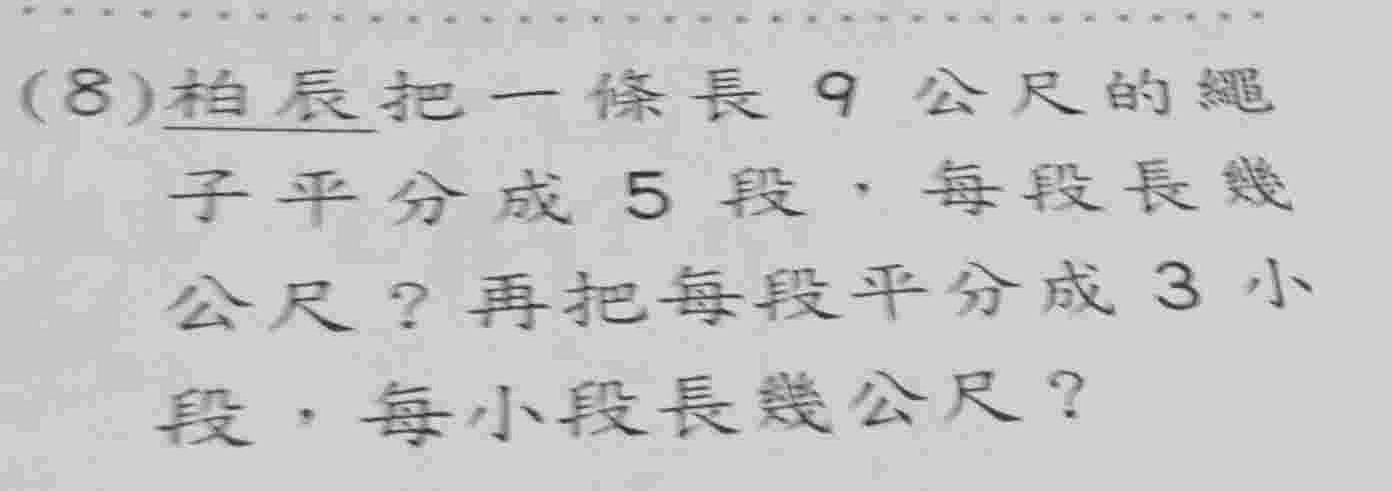 (8)柏辰把一條長 9 公尺的繩
子平分成 5 段，每段長幾
公尺？再把每段平分成 3 小
段，每小段長幾公尺？